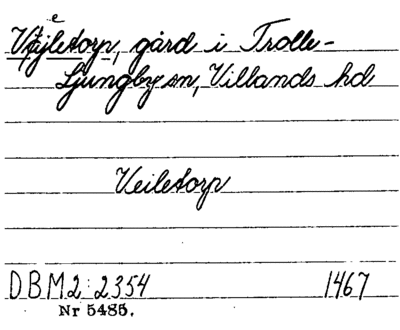 Vejletorp, gård i Trolle-
Ljungby sn, Villands hd
Veiletorp
DBM2: 2354 1467
Nr 5485.